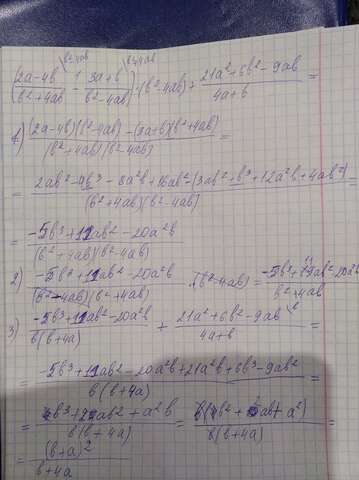 b²-4ab b²+4ab
(2a-4b/b²+4ab - 3a+b/b²-4ab)·(b²-4ab) + 21a²+6b²-9ab/4a+b =
1) (2a-4b)(b²-4ab)-(3a+b)(b²+4ab)/(b²+4ab)(b²-4ab) =
= 2ab²-4b³-8a²b+16ab²-(3ab²+b³+12a²b+4ab²)/(b²+4ab)(b²-4ab) =
= -5b³+11ab²-20a²b/(b²+4ab)(b²-4ab)
2) -5b³+11ab²-20a²b/(b²-4ab)(b²+4ab) ·(b²-4ab) = -5b³+11ab²-20a²b/b²+4ab
3) -5b³+11ab²-20a²b/b(b+4a) + 21a²+6b²-9ab/4a+b =
= -5b³+11ab²-20a²b+21a²b+6b³-9ab²/b(b+4a) =
= b³+2ab²+a²b/b(b+4a) = b(b²+2ab+a²)/b(b+4a) =
= (b+a)²/b+4a